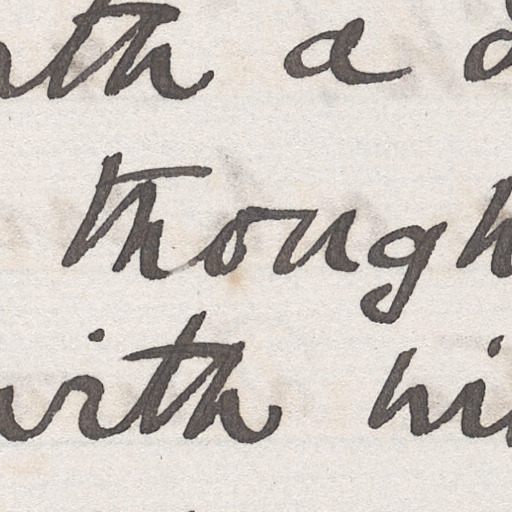 th a
though
with hi